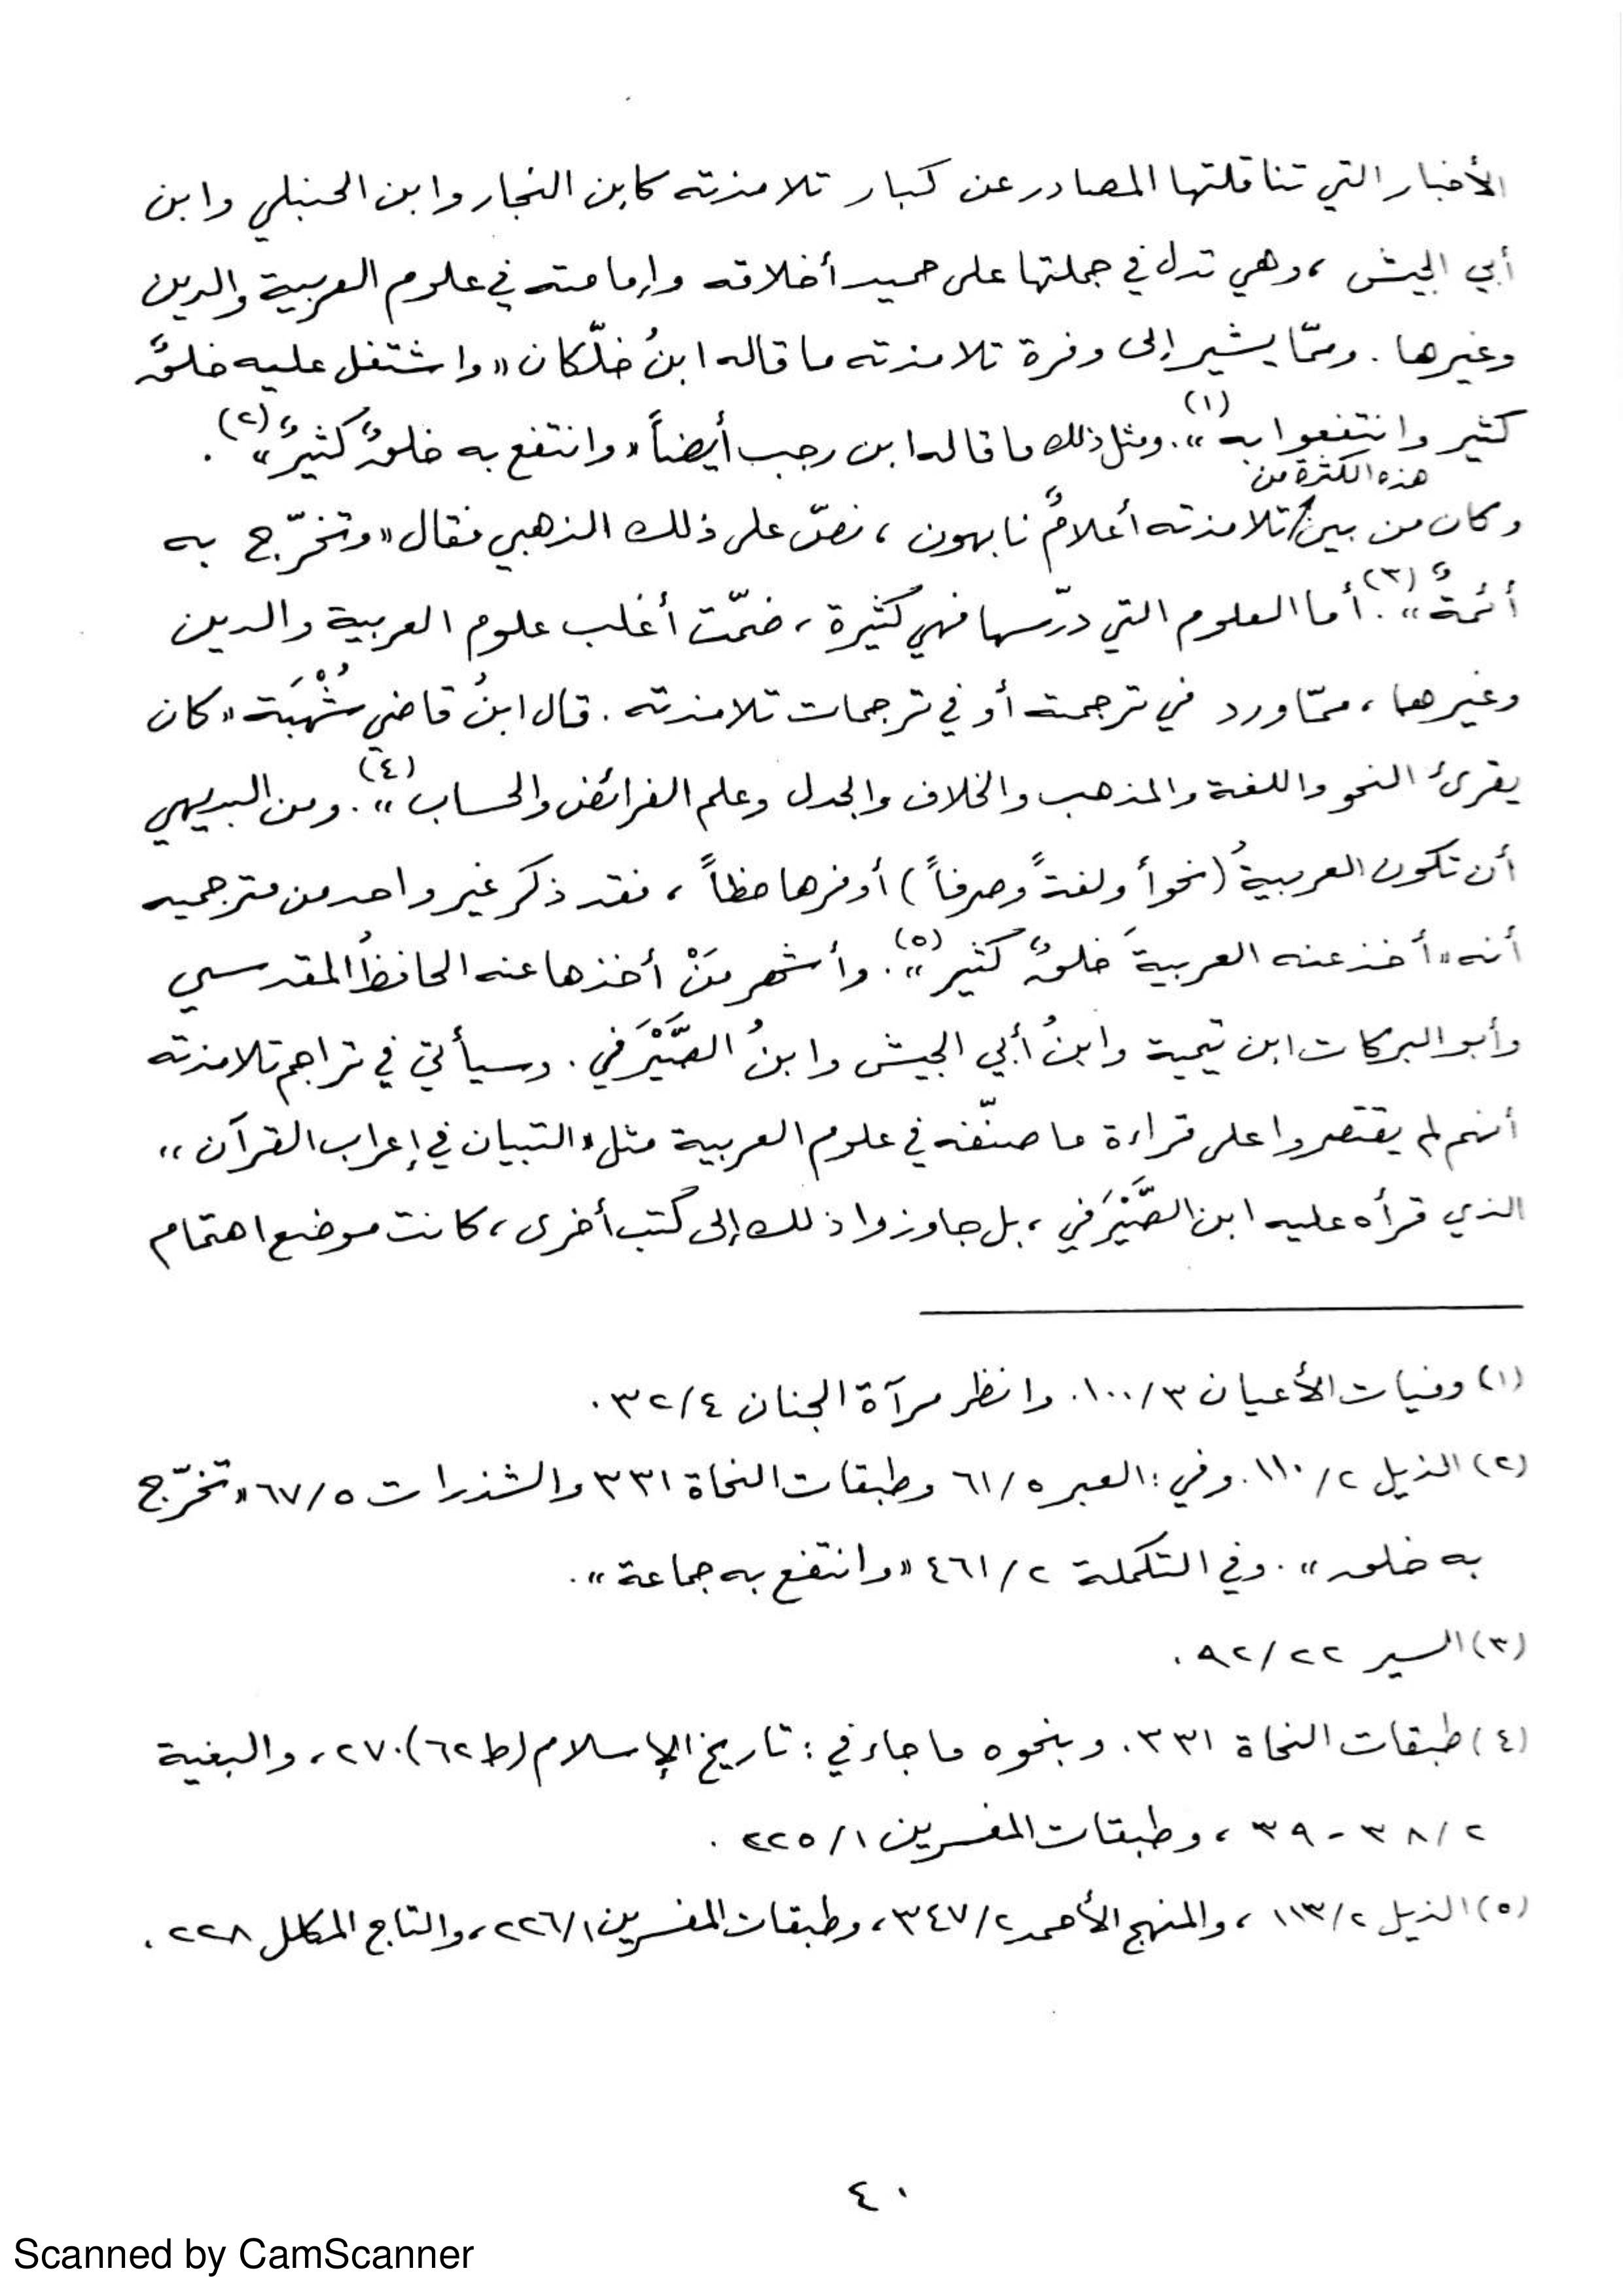 الأخبار التي تناقلتها المصادر عن كبار تلامذته كابن النجار وابن الحنبلي وابن
أبي الجيش، وهي تدل في جملتها على حميد أخلاقه وإمامته في علوم العربية والدين
وغيرها. وممّا يشير إلى وفرة تلامذته ما قاله ابنُ خلّكان «واشتغل عليه خلقٌ
كثير وانتفعوا به»(١). ومثل ذلك ما قاله ابن رجب أيضاً «وانتفع به خلقٌ كثيرٌ»(٢).
وكان من بين هذه الكثرة من تلامذته أعلامٌ نابهون، نصّ على ذلك الذهبي فقال «وتخرّج به
أئمةٌ»(٣). أما العلوم التي درّسها فهي كثيرة، ضمّت أغلب علوم العربية والدين
وغيرهما، ممّا ورد في ترجمته أو في ترجمات تلامذته. قال ابنُ قاضي شُهْبَة «كان
يقرئ النحو واللغة والمذهب والخلاف والجدل وعلم الفرائض والحساب»(٤). ومن البديهي
أن تكون العربيةُ (نحواً ولغةً وصرفاً) أوفرها حظاً، فقد ذكر غير واحد من مترجميه
أنه «أخذ عنه العربيةَ خلقٌ كثير»(٥). وأشهر مَنْ أخذها عنه الحافظُ المقدسي
وأبو البركات ابن تيمية وابنُ أبي الجيش وابنُ الصَّيْرَفي. وسيأتي في تراجم تلامذته
أنهم لم يقتصروا على قراءة ما صنّفه في علوم العربية مثل «التبيان في إعراب القرآن»
الذي قرأه عليه ابن الصَّيْرَفي، بل جاوزوا ذلك إلى كُتب أخرى، كانت موضع اهتمام
(١) وفيات الأعيان ٣/١٠٠. وانظر مرآة الجنان ٤/٣٢.
(٢) الذيل ٢/١١٠. وفي: العبر ٥/٦١ وطبقات النحاة ٣٣١ والشذرات ٥/٦٧ «تخرّج
به خلق». وفي التكملة ٢/٤٦١ «وانتفع به جماعة».
(٣) السير ٢٢/٩٢.
(٤) طبقات النحاة ٣٣١. وبنحوه ما جاء في: تاريخ الإسلام (ط٦٢) ٢٧٠، والبغية
٢/٣٨ - ٣٩، وطبقات المفسرين ١/٢٢٥.
(٥) الذيل ٢/١١٣، والمنهج الأحمد ٢/٣٤٧، وطبقات المفسرين ١/٢٢٦، والتاج المكلل ٢٢٨.
٤٠
Scanned by CamScanner